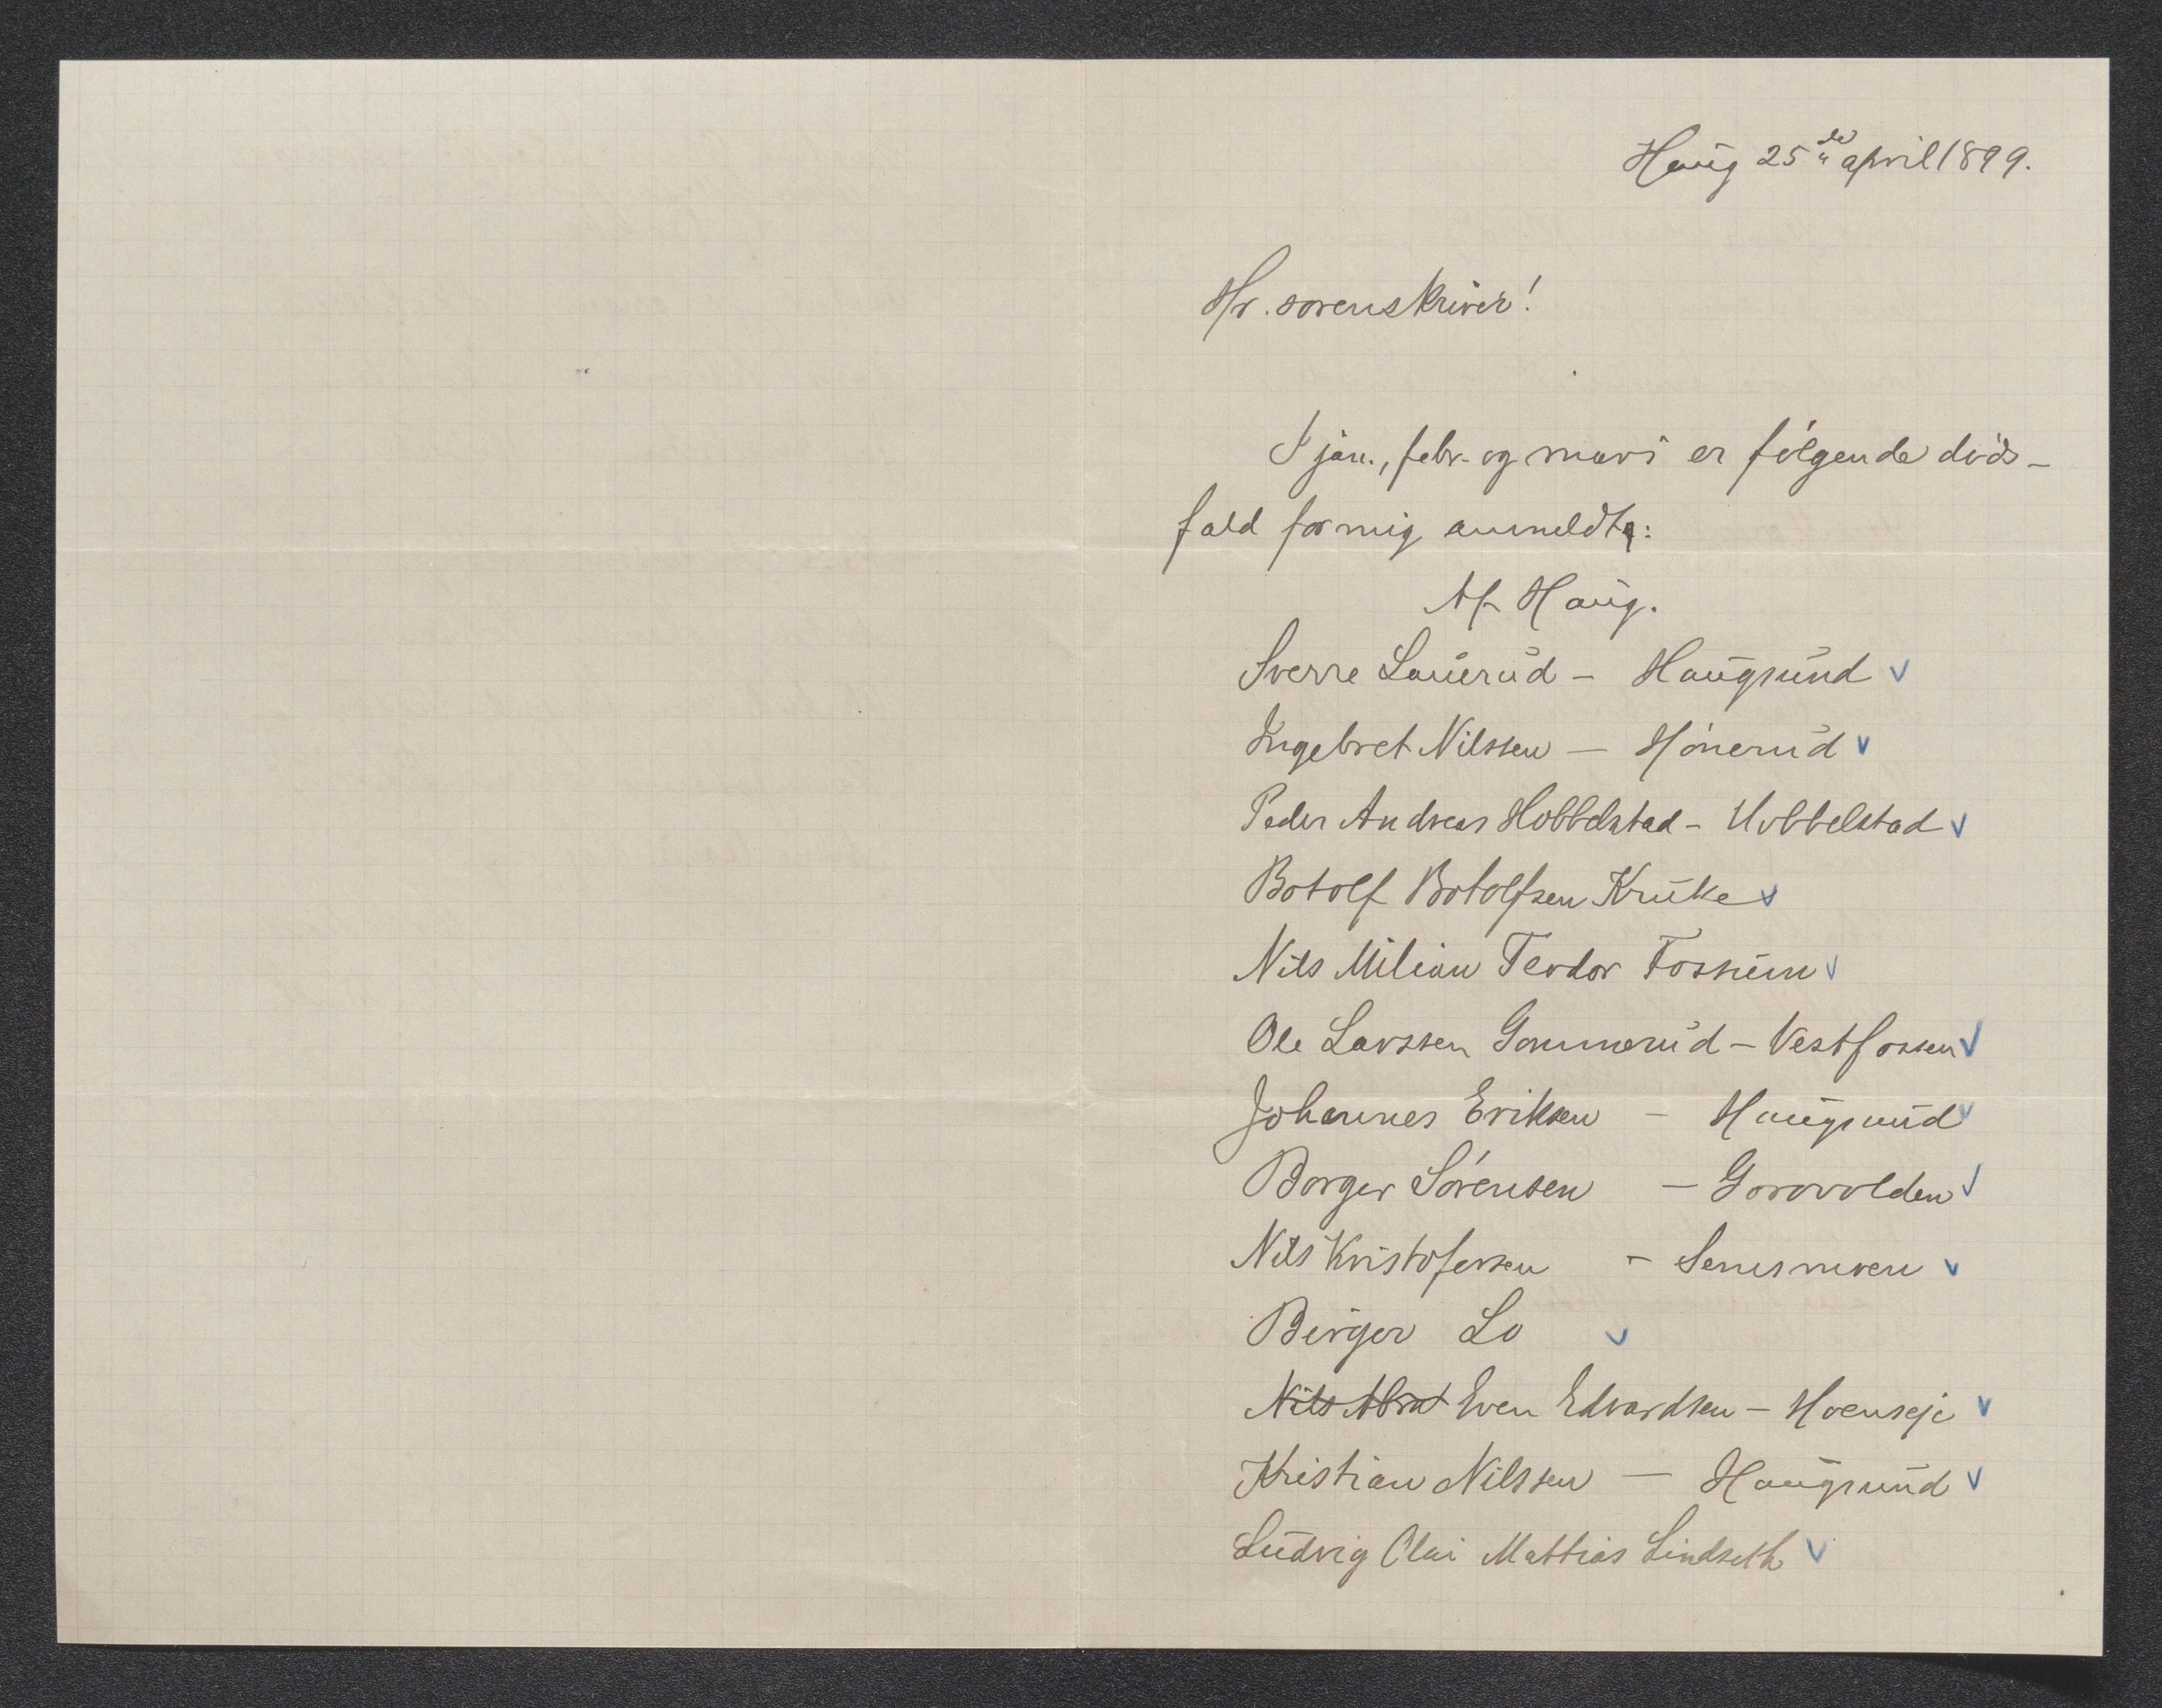 Haug 25de april 1899.
Hr. sorenskriver!
I jan., febr. og mars er følgende døds-
fald for mig anmeldt:
Af Haug.
Sverre Lauerud – Haugsund
Ingebret Nilssen – Hønerud
Peder Andreas Hobbelstad – Hobbelstad
Botolf Botolfsen Kruke
Nils Milian Teodor Fossum
Ole Larssen Gommerud – Vestfossen
Johannes Eriksen – Haugsund
Borger Sørensen – Gorovolden
Nils Kristofersen – Semsmoen
Birger Lo
Nils Abra Even Edvardsen – Hoenseje
Kristian Nilssen – Haugsund
Ludvig Olai Mattias Lindseth